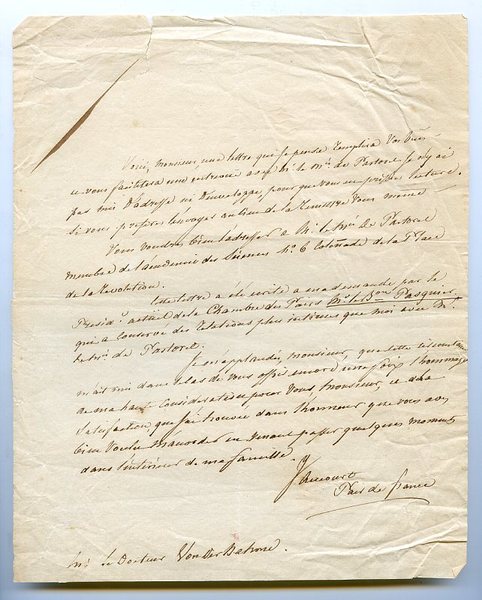 Voici, Monsieur, une lettre que je pense remplira vos vues
et vous facilitera une entrevue avec Mr le Mis de Pastoret. Je n'y ai
pas mis d'adresse ni d'enveloppe, pour que vous en prissiez lecture
si vous préférez l'envoyer au lieu de la remettre vous même
Vous voudrez bien l'adresser à Mr le Mis De Pastoret
membre de l'académie des Sciences No 6 Colonade de la Place
de la Révolution.
Cette lettre a été écrite a ma demande par le
Présidt actuel de la Chambre des Pairs Mr le Bon Pasquier,
qui a conservé des relations plus intimes que moi avec Mr
le Mis de Pastoret.
Je m'applaudis, Monsieur, que cette
m'ait mis dans le cas de vous offrir encore une fois l'hommage
de ma haute considération pour vous, Monsieur, et de la
satisfaction que j'ai trouvée dans l'honneur que vous avez
bien voulu m'accorder en venant passer quelques moments
dans l'intérieur de ma famille.
Jaucourt
Pair de france
Mr le Docteur